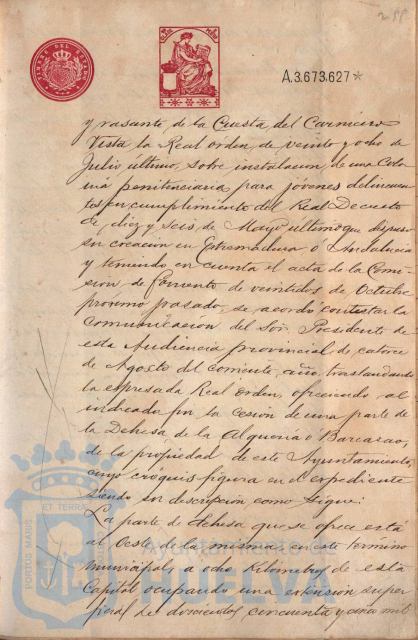 288
TIMBRE DEL ESTADO
A.3.673.627*
y rasante, de la Cuesta del Carnicero
Vista la Real orden de veinte y ocho de
Julio último, sobre instalacion de una Colo
nia penitenciaria para jóvenes delincuen
tes en cumplimiento del Real Decreto
de diez y seis de Mayo último que dispuso
su creacion en Extremadura o Andalucia
y teniendo en cuenta el acta de la Comi
sion de Fomento de veintidos de Octubre
proximo pasado, se acordó contestar la
comunicacion del Sor. Presidente de
esta Audiencia provincial, de catorce
de Agosto del corriente año, trasladando
la expresada Real orden, ofreciendo al
indicado fin la cesion de una parte de
la Dehesa de la Alqueria o Barcarao,
de la propiedad de este Ayuntamiento
cuyo cróquis figura en el expediente
siendo su descripcion como sigue:
La parte de dehesa que se ofrece está
al Oeste de la misma en este término
municipal, a ocho kilómetros de esta
Capital ocupando una extension super
ficial de doscientos cincuenta y una mil
PORTUS MARIS
ET TERRAE
Ayuntamiento de
HUELVA